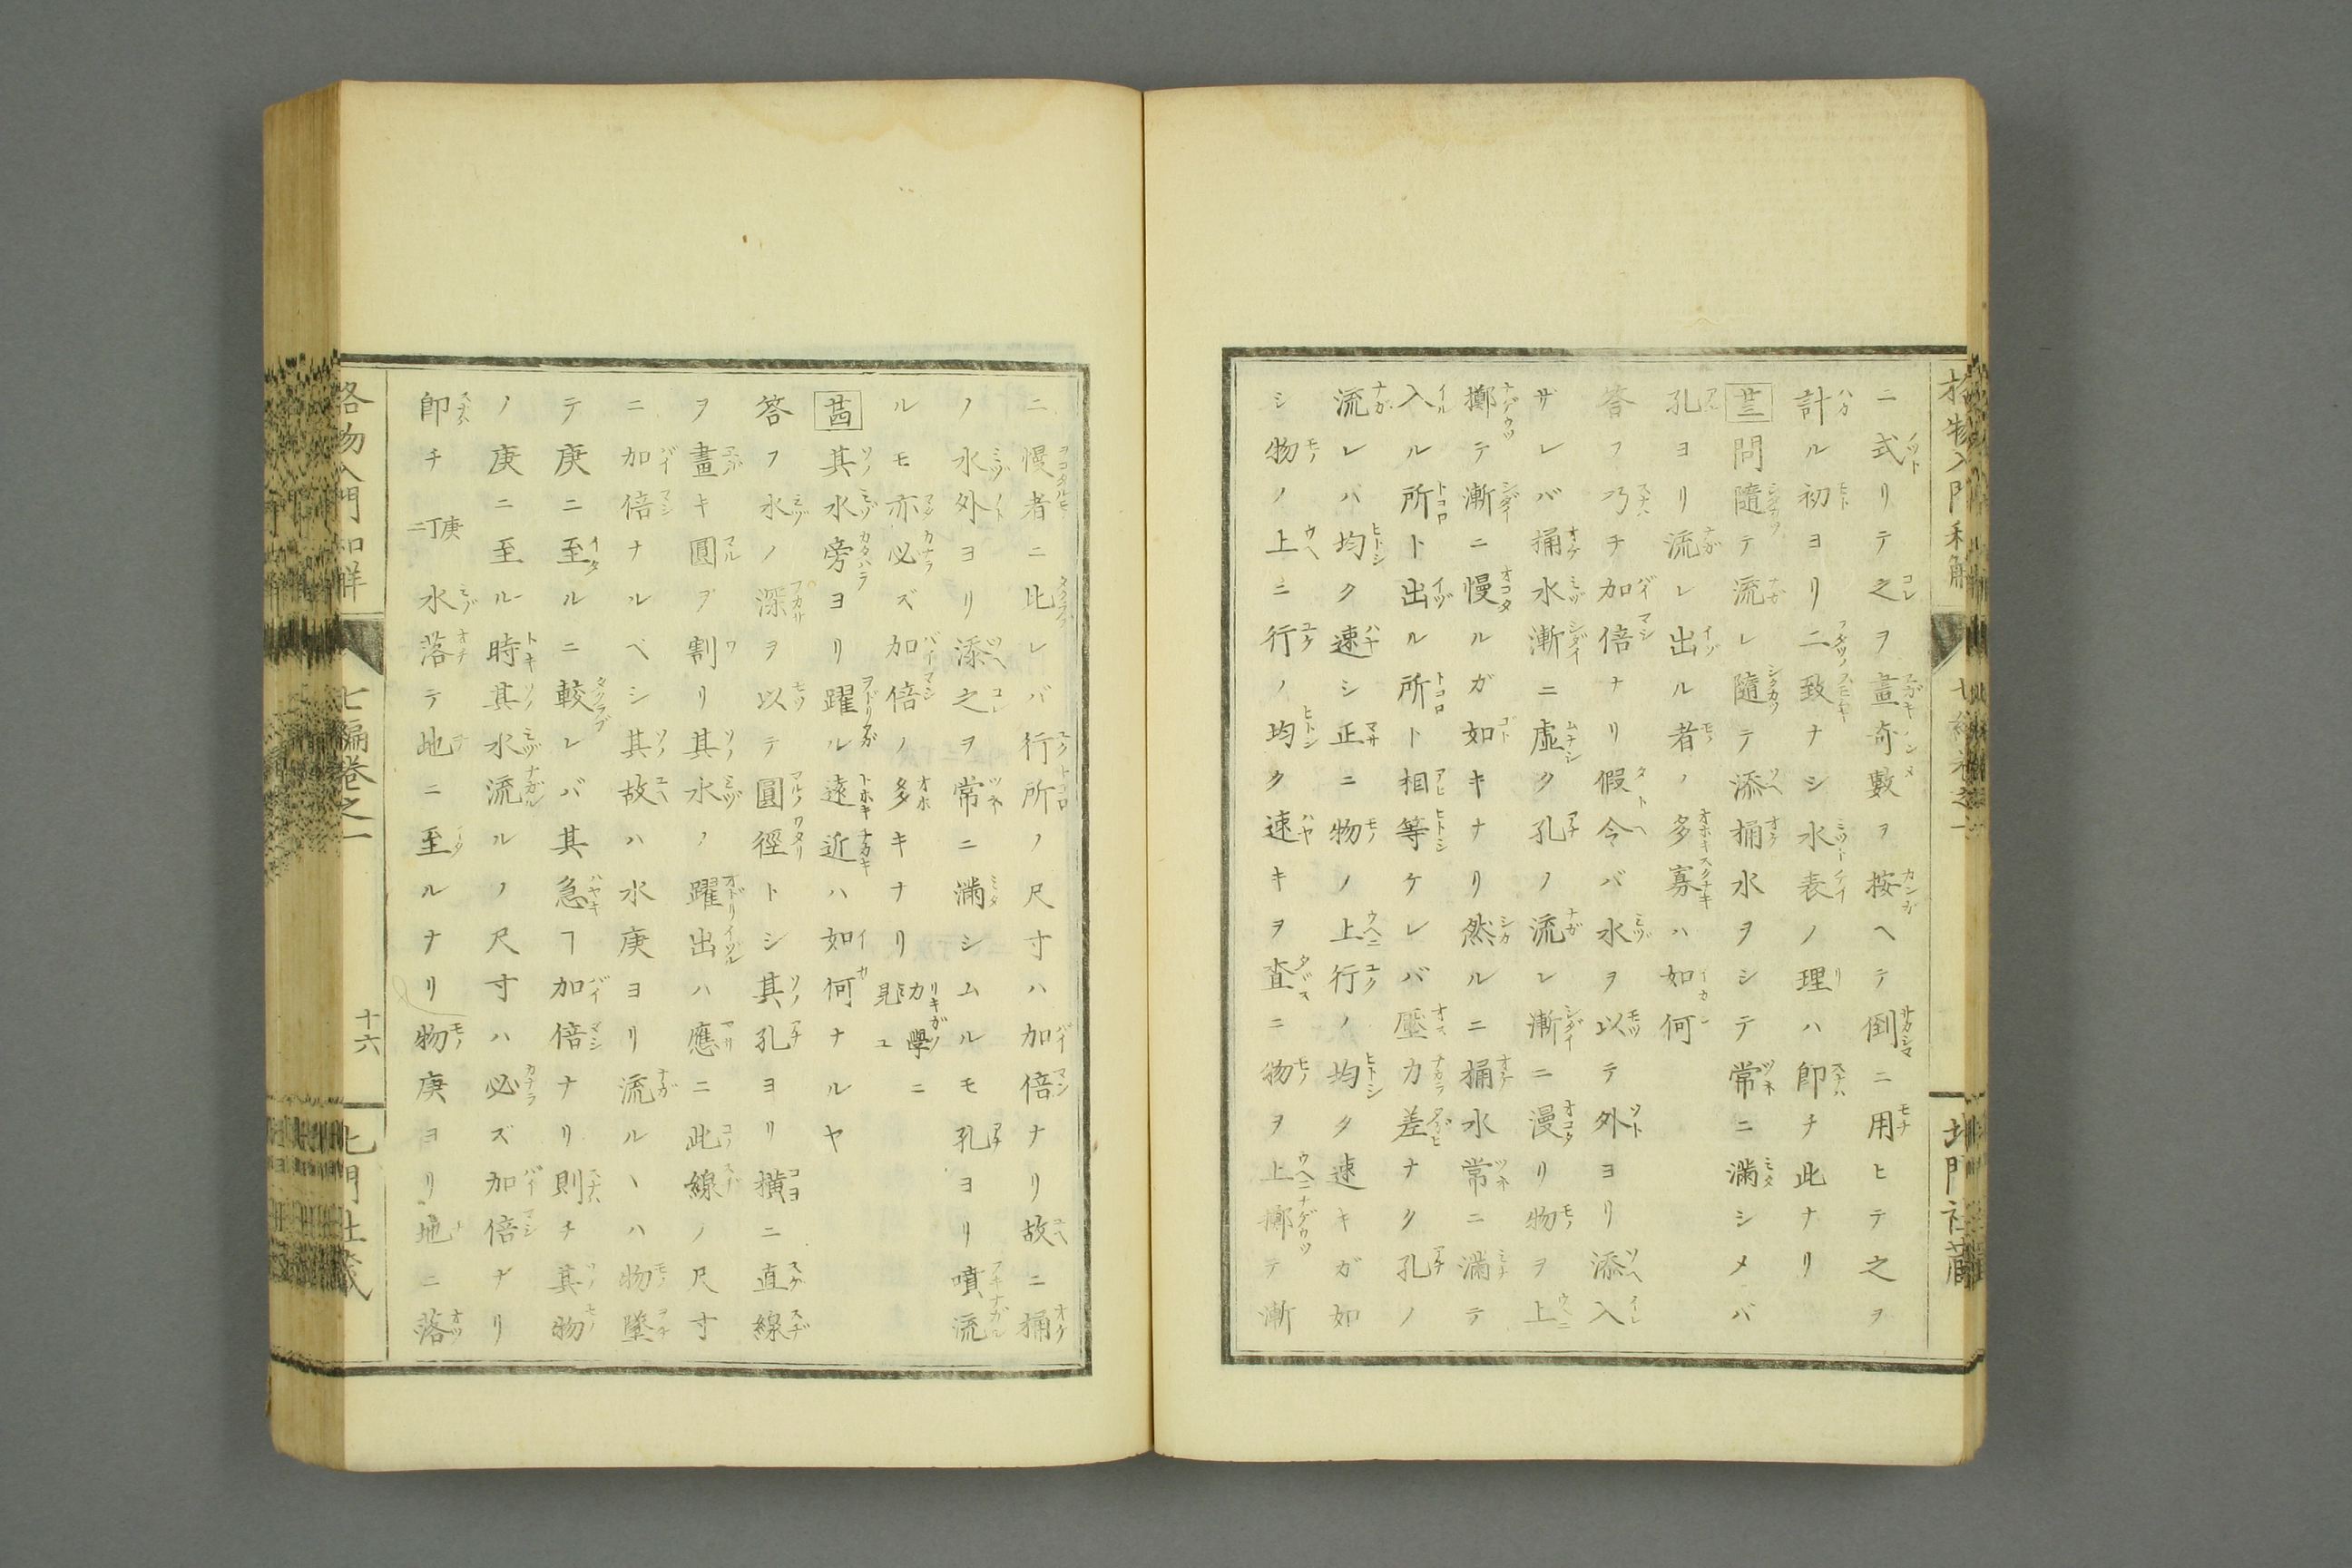 ニ式リテ之ヲ畫奇數ヲ按ヘテ倒ニ用ヒテ之ヲ
計ル初ヨリ二致ナシ水表ノ理ハ即チ此ナリ
廿三問隨テ流レ隨テ添桶水ヲシテ常ニ滿シメバ
孔ヨリ流レ出ル者ノ多寡ハ如何
答フ乃チ加倍ナリ假令バ水ヲ以テ外ヨリ添入
ザレバ桶水漸ニ虛ク孔ノ流レ漸ニ漫リ物ヲ上
擲テ漸ニ慢ルガ如キナリ然ルニ桶水常ニ滿テ
入ル所ト出ル所ト相等ケレバ壓力差ナク孔ノ
流レハ均ク速シ正ニ物ノ上行ノ均ク速キガ如
シ物ノ上ニ行ノ均ク速キヲ査ニ物ヲ上擲テ漸
格物入門和解
七編卷之一
北門社蔵
ニ慢者ニ比レバ行所ノ尺寸ハ加倍ナリ故ニ桶
ノ水外ヨリ添之ヲ常ニ滿シムルモ孔ヨリ噴流
ルモ亦必ズ加倍ノ多キナリ力學ニ見ユ
廿四其水旁ヨリ躍ル遠近ハ如何ナルヤ
答フ水ノ深ヲ以テ圓徑トシ其孔ヨリ橫ニ直線
ヲ畫キ圓ヲ割リ其水ノ躍出ハ應ニ此線ノ尺寸
ニ加倍ナルベシ其故ハ水庚ヨリ流ルヽハ物墜
テ庚ニ至ルニ較レバ其急ヿ加倍ナリ則チ其物
ノ庚ニ至ル時其水流ルノ尺寸ハ必ズ加倍ナリ
即チ庚丁二水落テ地ニ至ルナリ物庚ヨリ地ニ落
格物入門和解
七編卷之一
十六
北門社蔵